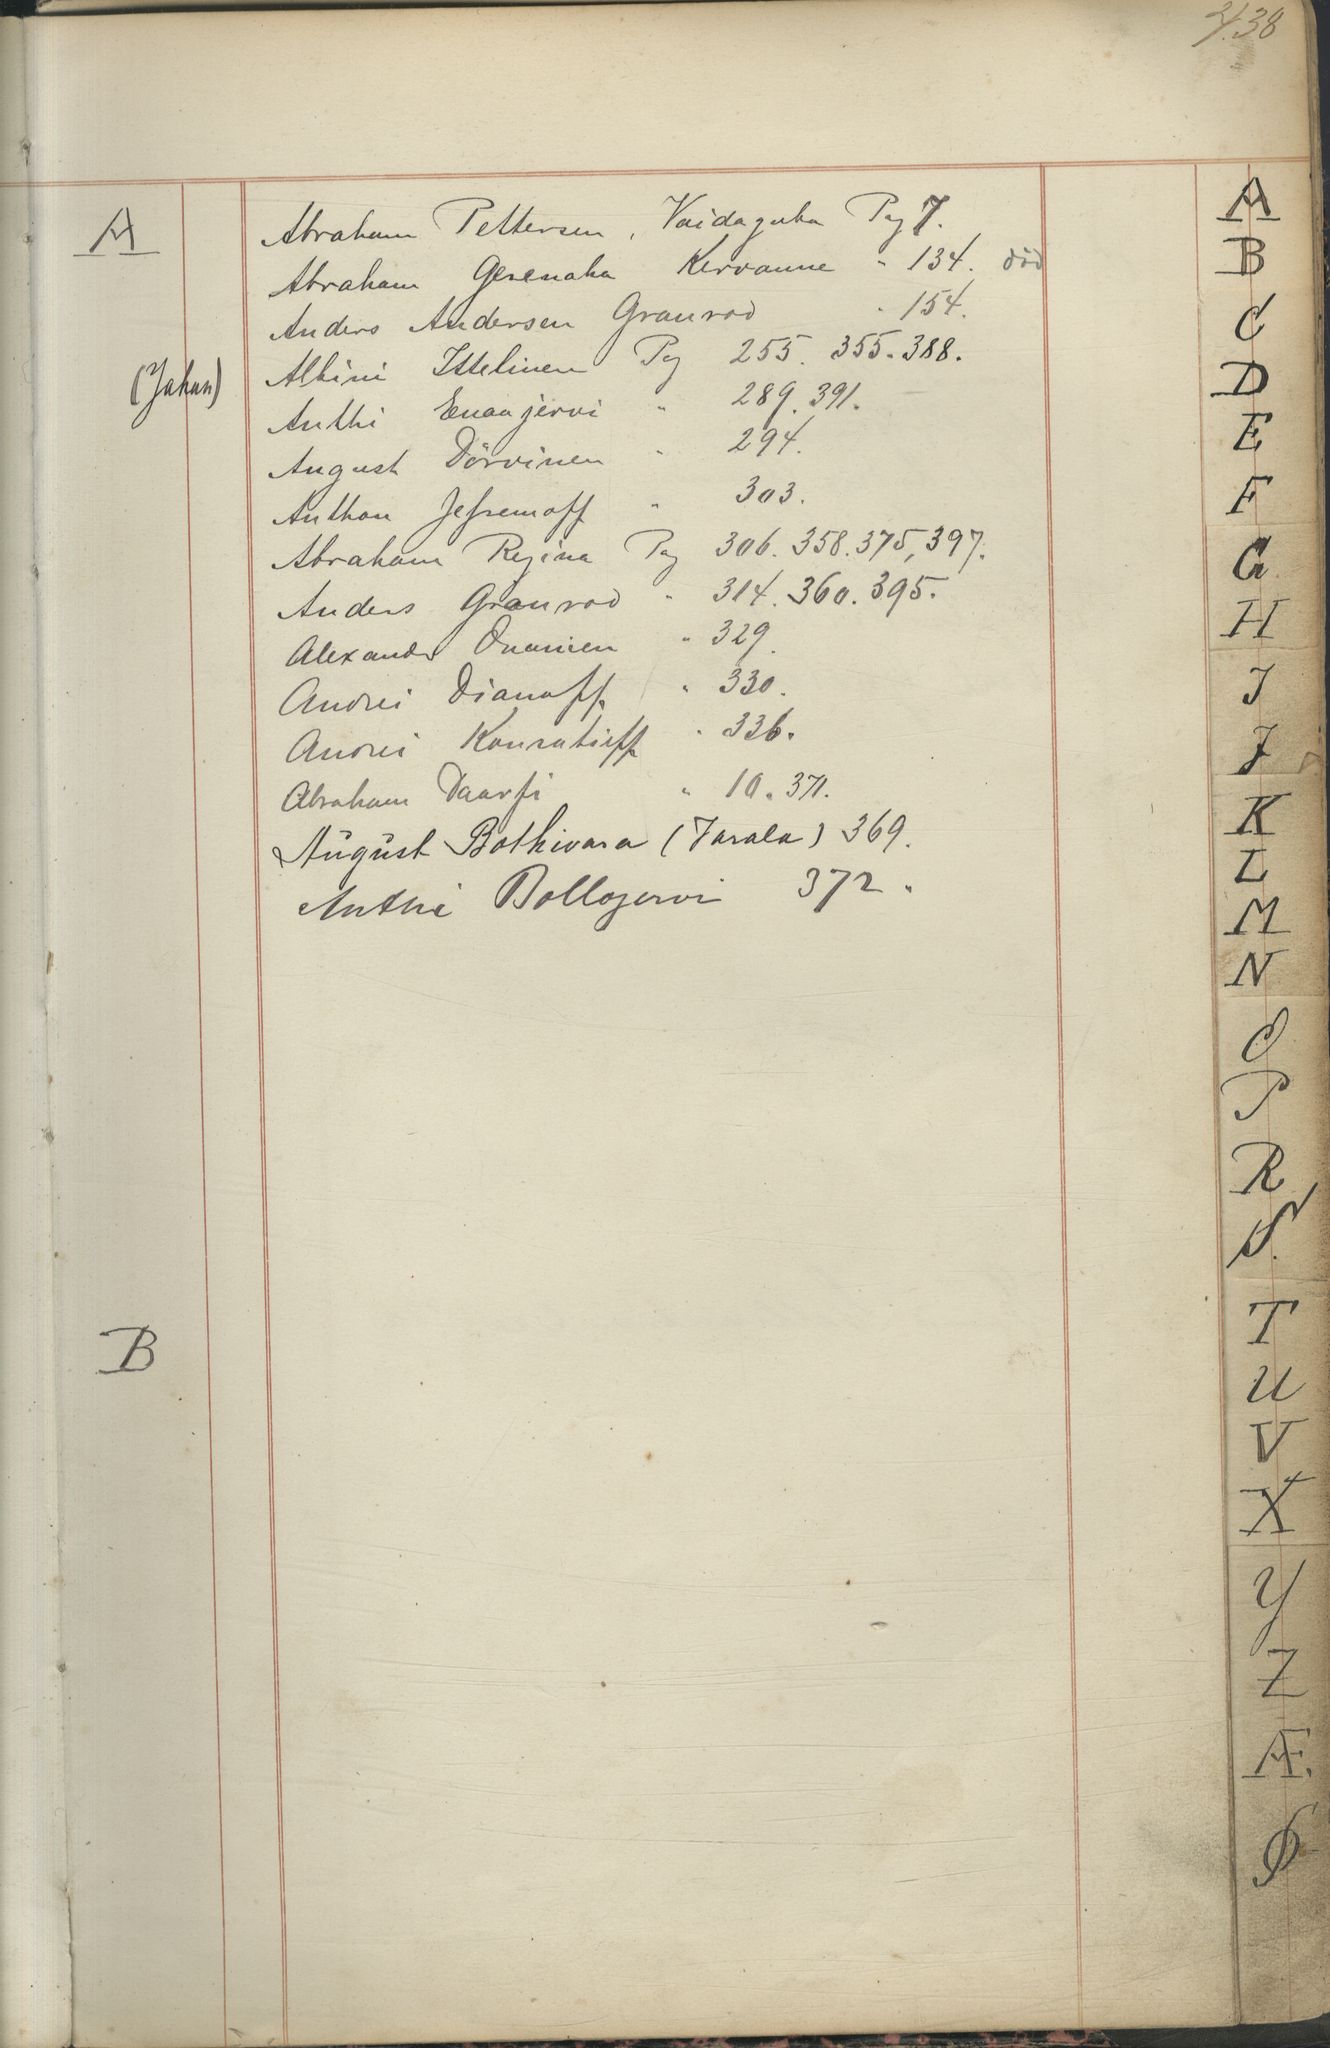 438
A
Abraham Pettersen, Vaidaguba Pag 7.
Abraham Geresaha Kervanne " 134. död
Anders Andersen Granrod " 154.
Albini Ittelinen Pag 255. 355. 388.
(Johan) Anthi Enaajervi " 289. 391.
August Dörvinen " 294.
Anthon Jefremoff " 303.
Abraham Regina Pag 306. 358. 375, 397.
Anders Granrod " 314. 360. 395.
Alexander Onanien " 329.
Andrei Dianoff " 330.
Andrei Konratieff " 336.
Abraham Daarfi " 10. 371.
August Bothivara (Tarala) 369.
Anthi Bollojervi 372.
B
A
B
C
D
E
F
G
H
I
J
K
L
M
N
O
P
R
S.
T
U
V
X
Y
Z
Æ.
Ø